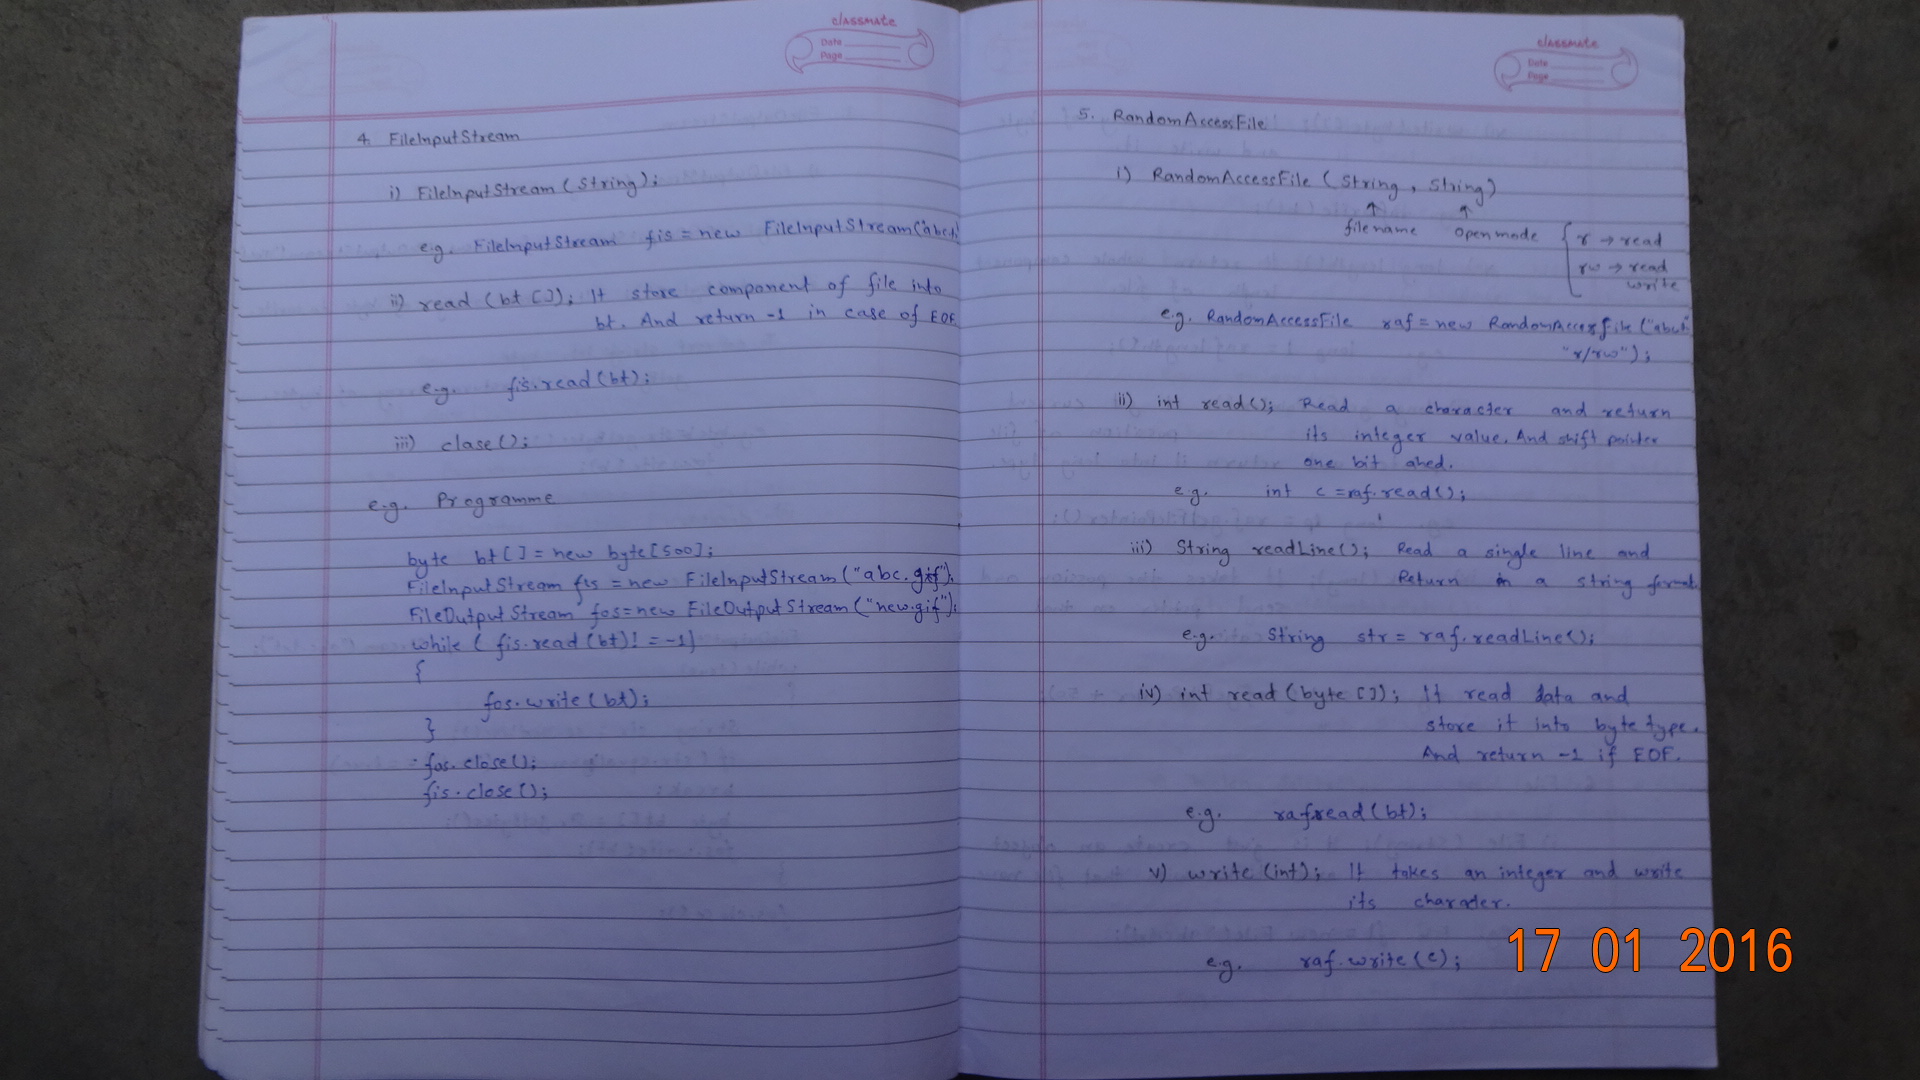 classmate
Date
Page
4. FileInputStream
i) FileInputStream (String);
e.g. FileInputStream fis = new FileInputStream("abc.
ii) read (bt []); It store component of file into
bt. And return -1 in case of EOF
e.g. fis.read(bt);
iii) clase();
e.g. Programme
byte bt[] = new byte[500];
FileInputStream fis = new FileInputStream ("abc.gif");
FileOutputStream fos=new FileOutputStream ("new.gif");
while ( fis.read (bt)! = -1)
{
fos.write (bt);
}
fos.close();
fis.close();
classmate
Date
Page
5. RandomAccessFile
i) RandomAccessFile (String, String)
↑ ↑
filename openmode { r → read
rw → read
write
e.g. RandomAccessFile raf = new RandomAccessfile ("abc.
"r/rw");
ii) int read(); Read a character and return
its integer value. And shift pointer
one bit ahed.
e.g. int c =raf.read();
iii) String readLine(); Read a single line and
Return in a string format
e.g. String str = raf.readLine();
iv) int read (byte []); It read data and
store it into byte type.
And return -1 if EOF.
e.g. raf.read(bt);
v) write (int); It takes an integer and write
its charader.
e.g. raf.write(c);
17 01 2016